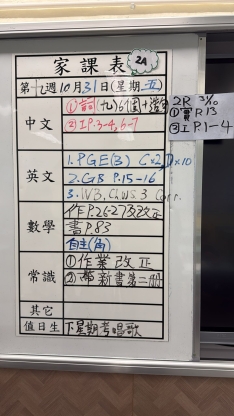 家課表 2A
第九週10月31日(星期五)
中文
②工P.3-4,6-7
2R 31/10
P.13
②工P.1-4
英文
1. PGE(3) C×2,D×10
2. GB P.15-16
3. WB, Ch.WS.3 Corr.
數學
作P.26-27及改正
書P.83
自主(角)
常識
①作業改正
②帶新書第二冊
其它
值日生
下星期考唱歌